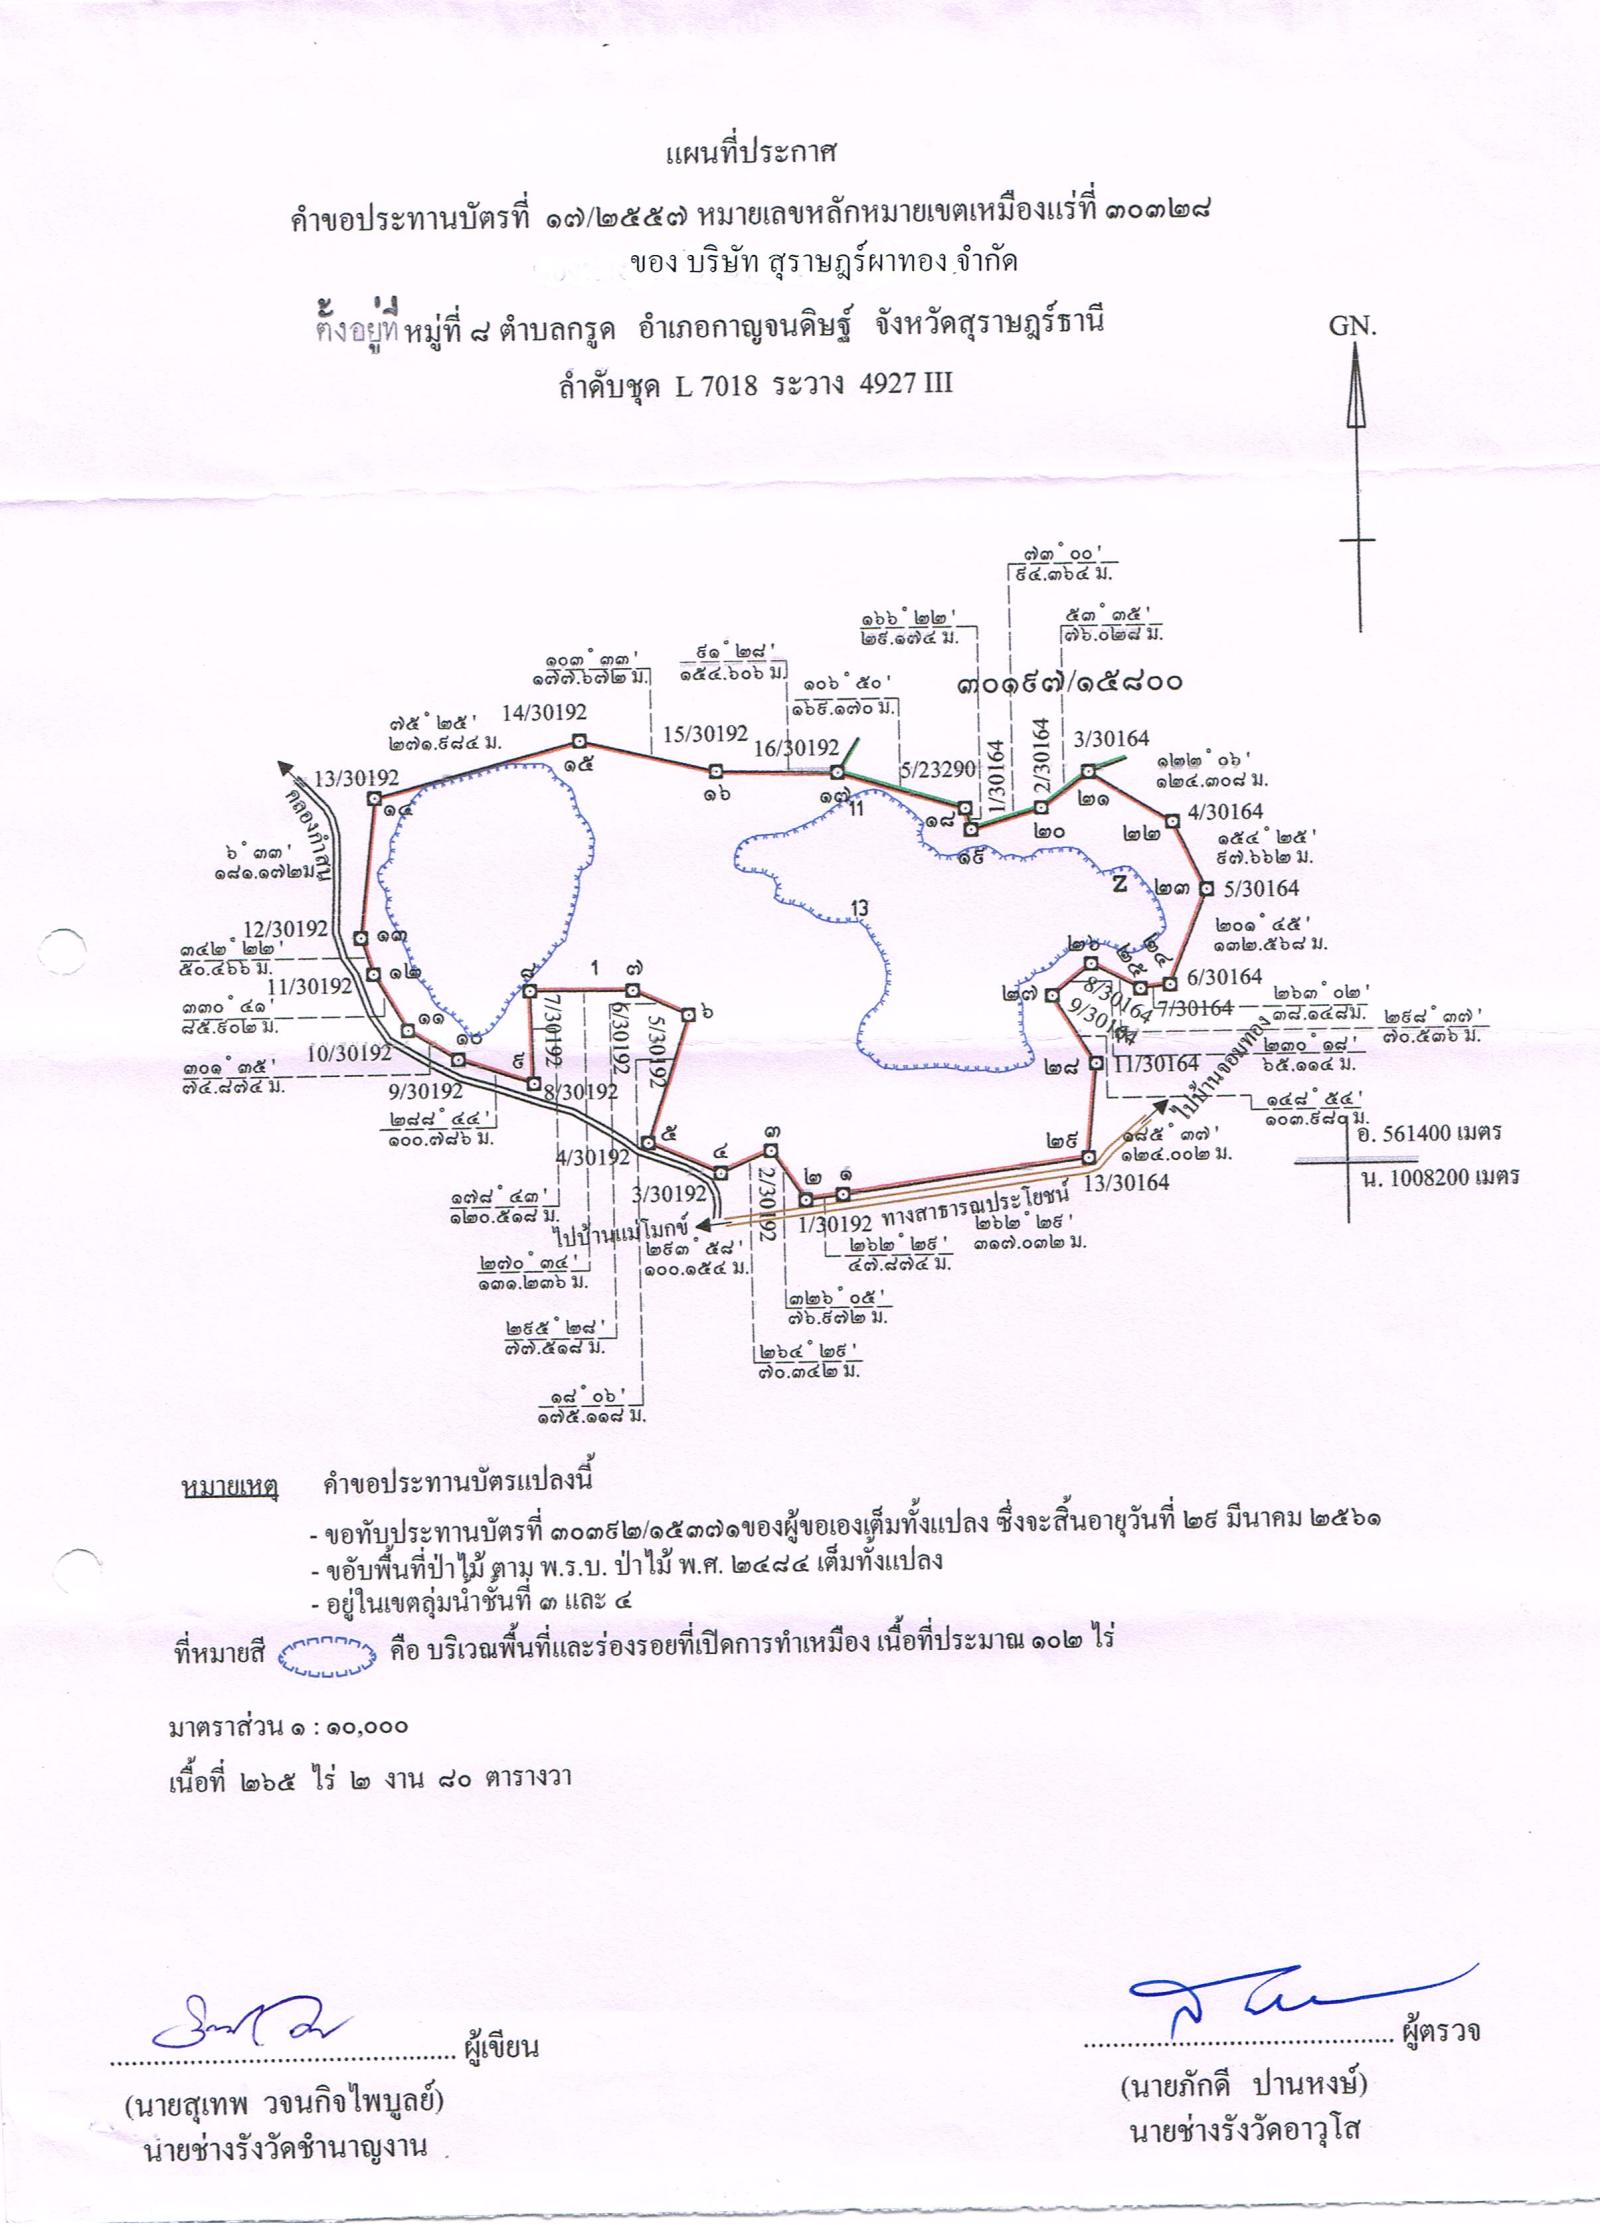 แผนที่ประกาศ
คำขอประทานบัตรที่ ๑๗/๒๕๕๗ หมายเลขหลักหมายเขตเหมืองแร่ที่ ๓๐๓๒๘
ของ บริษัท สุราษฎร์ผาทอง จำกัด
ตั้งอยู่ที่ หมู่ที่ ๘ ตำบลกรูด อำเภอกาญจนดิษฐ์ จังหวัดสุราษฎร์ธานี
ลำดับชุด L 7018 ระวาง 4927 III
GN.
๗๓° ๐๐'
๙๔.๓๖๔ ม.
๑๖๖° ๒๒'
๒๙.๑๗๔ ม.
๕๓° ๓๕'
๗๖.๐๒๘ ม.
๑๐๓° ๓๓'
๑๗๗.๖๗๒ ม.
๙๑° ๒๘'
๑๕๔.๖๐๖ ม.
๑๐๖° ๕๐'
๑๖๙.๑๗๐ ม.
๓๐๑๙๗/๑๕๘๐๐
๗๕° ๒๕'
๒๗๑.๙๘๔ ม.
14/30192
15/30192
16/30192
5/23290
1/30164
2/30164
3/30164
๑๒๒° ๐๖'
๑๒๔.๓๐๘ ม.
13/30192
๑๔
๑๕
๑๖
๑๗
11
๑๘
๑๙
๒๐
๒๑
๒๒
4/30164
๑๕๔° ๒๕'
๙๗.๖๖๒ ม.
คลองกำสน
๖° ๓๓'
๑๘๑.๑๗๒ม.
Z
๒๓
5/30164
13
12/30192
๑๓
๒๐๑° ๔๕'
๑๓๒.๕๖๘ ม.
๓๔๒° ๒๒'
๕๐.๔๖๖ ม.
๑๒
11/30192
๘
1
๗
๖
๒๖
๒๕
๒๔
6/30164
๒๗
8/30164
7/30164
9/30164
๒๖๓° ๐๒'
๓๘.๑๔๘ม.
๓๓๐° ๔๑'
๘๕.๙๐๒ ม.
๑๑
๒๙๘° ๓๗'
๗๐.๕๓๖ ม.
10/30192
๑๐
๙
7/30192
6/30192
5/30192
๒๓๐° ๑๘'
๖๕.๑๑๔ ม.
๒๘
11/30164
ไปบ้านจอมทอง
๓๐๑° ๓๕'
๗๔.๘๗๔ ม.
9/30192
8/30192
๑๔๘° ๕๔'
๑๐๓.๙๘๐ ม.
๒๘๘° ๔๔'
๑๐๐.๗๘๖ ม.
๕
๔
๓
๒
๑
๒๙
๑๘๕° ๓๗'
๑๒๔.๐๐๒ ม.
อ. 561400 เมตร
น. 1008200 เมตร
4/30192
3/30192
2/30192
13/30164
1/30192
ทางสาธารณประโยชน์
๑๗๘° ๔๓'
๑๒๐.๕๑๘ ม.
ไปบ้านแม่โมกข์
๒๖๒° ๒๙'
๓๑๗.๐๓๒ ม.
๒๙๓° ๕๘'
๑๐๐.๑๕๔ ม.
๒๖๒° ๒๙'
๔๗.๘๗๔ ม.
๒๗๐° ๓๔'
๑๓๑.๒๓๖ ม.
๓๒๖° ๐๕'
๗๖.๙๗๒ ม.
๒๙๕° ๒๘'
๗๗.๕๑๘ ม.
๒๖๔° ๒๙'
๗๐.๓๔๒ ม.
๑๘° ๐๖'
๑๗๕.๑๑๘ ม.
หมายเหตุ คำขอประทานบัตรแปลงนี้
- ขอทับประทานบัตรที่ ๓๐๓๙๒/๑๕๓๗๑ของผู้ขอเองเต็มทั้งแปลง ซึ่งจะสิ้นอายุวันที่ ๒๙ มีนาคม ๒๕๖๑
- ขอับพื้นที่ป่าไม้ ตาม พ.ร.บ. ป่าไม้ พ.ศ. ๒๔๘๔ เต็มทั้งแปลง
- อยู่ในเขตลุ่มน้ำชั้นที่ ๓ และ ๔
ที่หมายสี คือ บริเวณพื้นที่และร่องรอยที่เปิดการทำเหมือง เนื้อที่ประมาณ ๑๐๒ ไร่
มาตราส่วน ๑ : ๑๐,๐๐๐
เนื้อที่ ๒๖๕ ไร่ ๒ งาน ๘๐ ตารางวา
ผู้เขียน
(นายสุเทพ วจนกิจไพบูลย์)
นายช่างรังวัดชำนาญงาน
ผู้ตรวจ
(นายภักดี ปานหงษ์)
นายช่างรังวัดอาวุโส